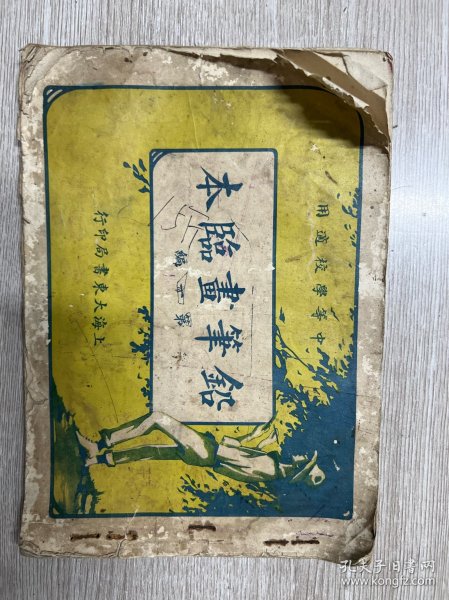 中等學校適用
鉛筆畫臨本
第編
上海大東書局印行
孔夫子旧书网
www.kongfz.com